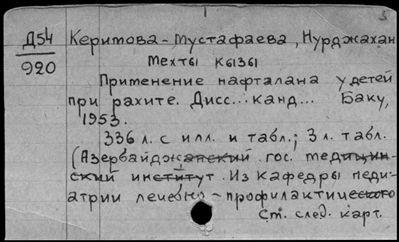 5
Д54 Керимова-Мустафаева, Нурджахан
920 Мехты кызы
Применение нафталана у детей
при рахите. Дисс... канд... Баку,
1953.
336 л. с илл. и табл.; 3 л. табл.
(Азербайджанский гос. медицин-
ский институт. Из кафедры педи-
атрии лечебно-профилактического
См. след. карт.